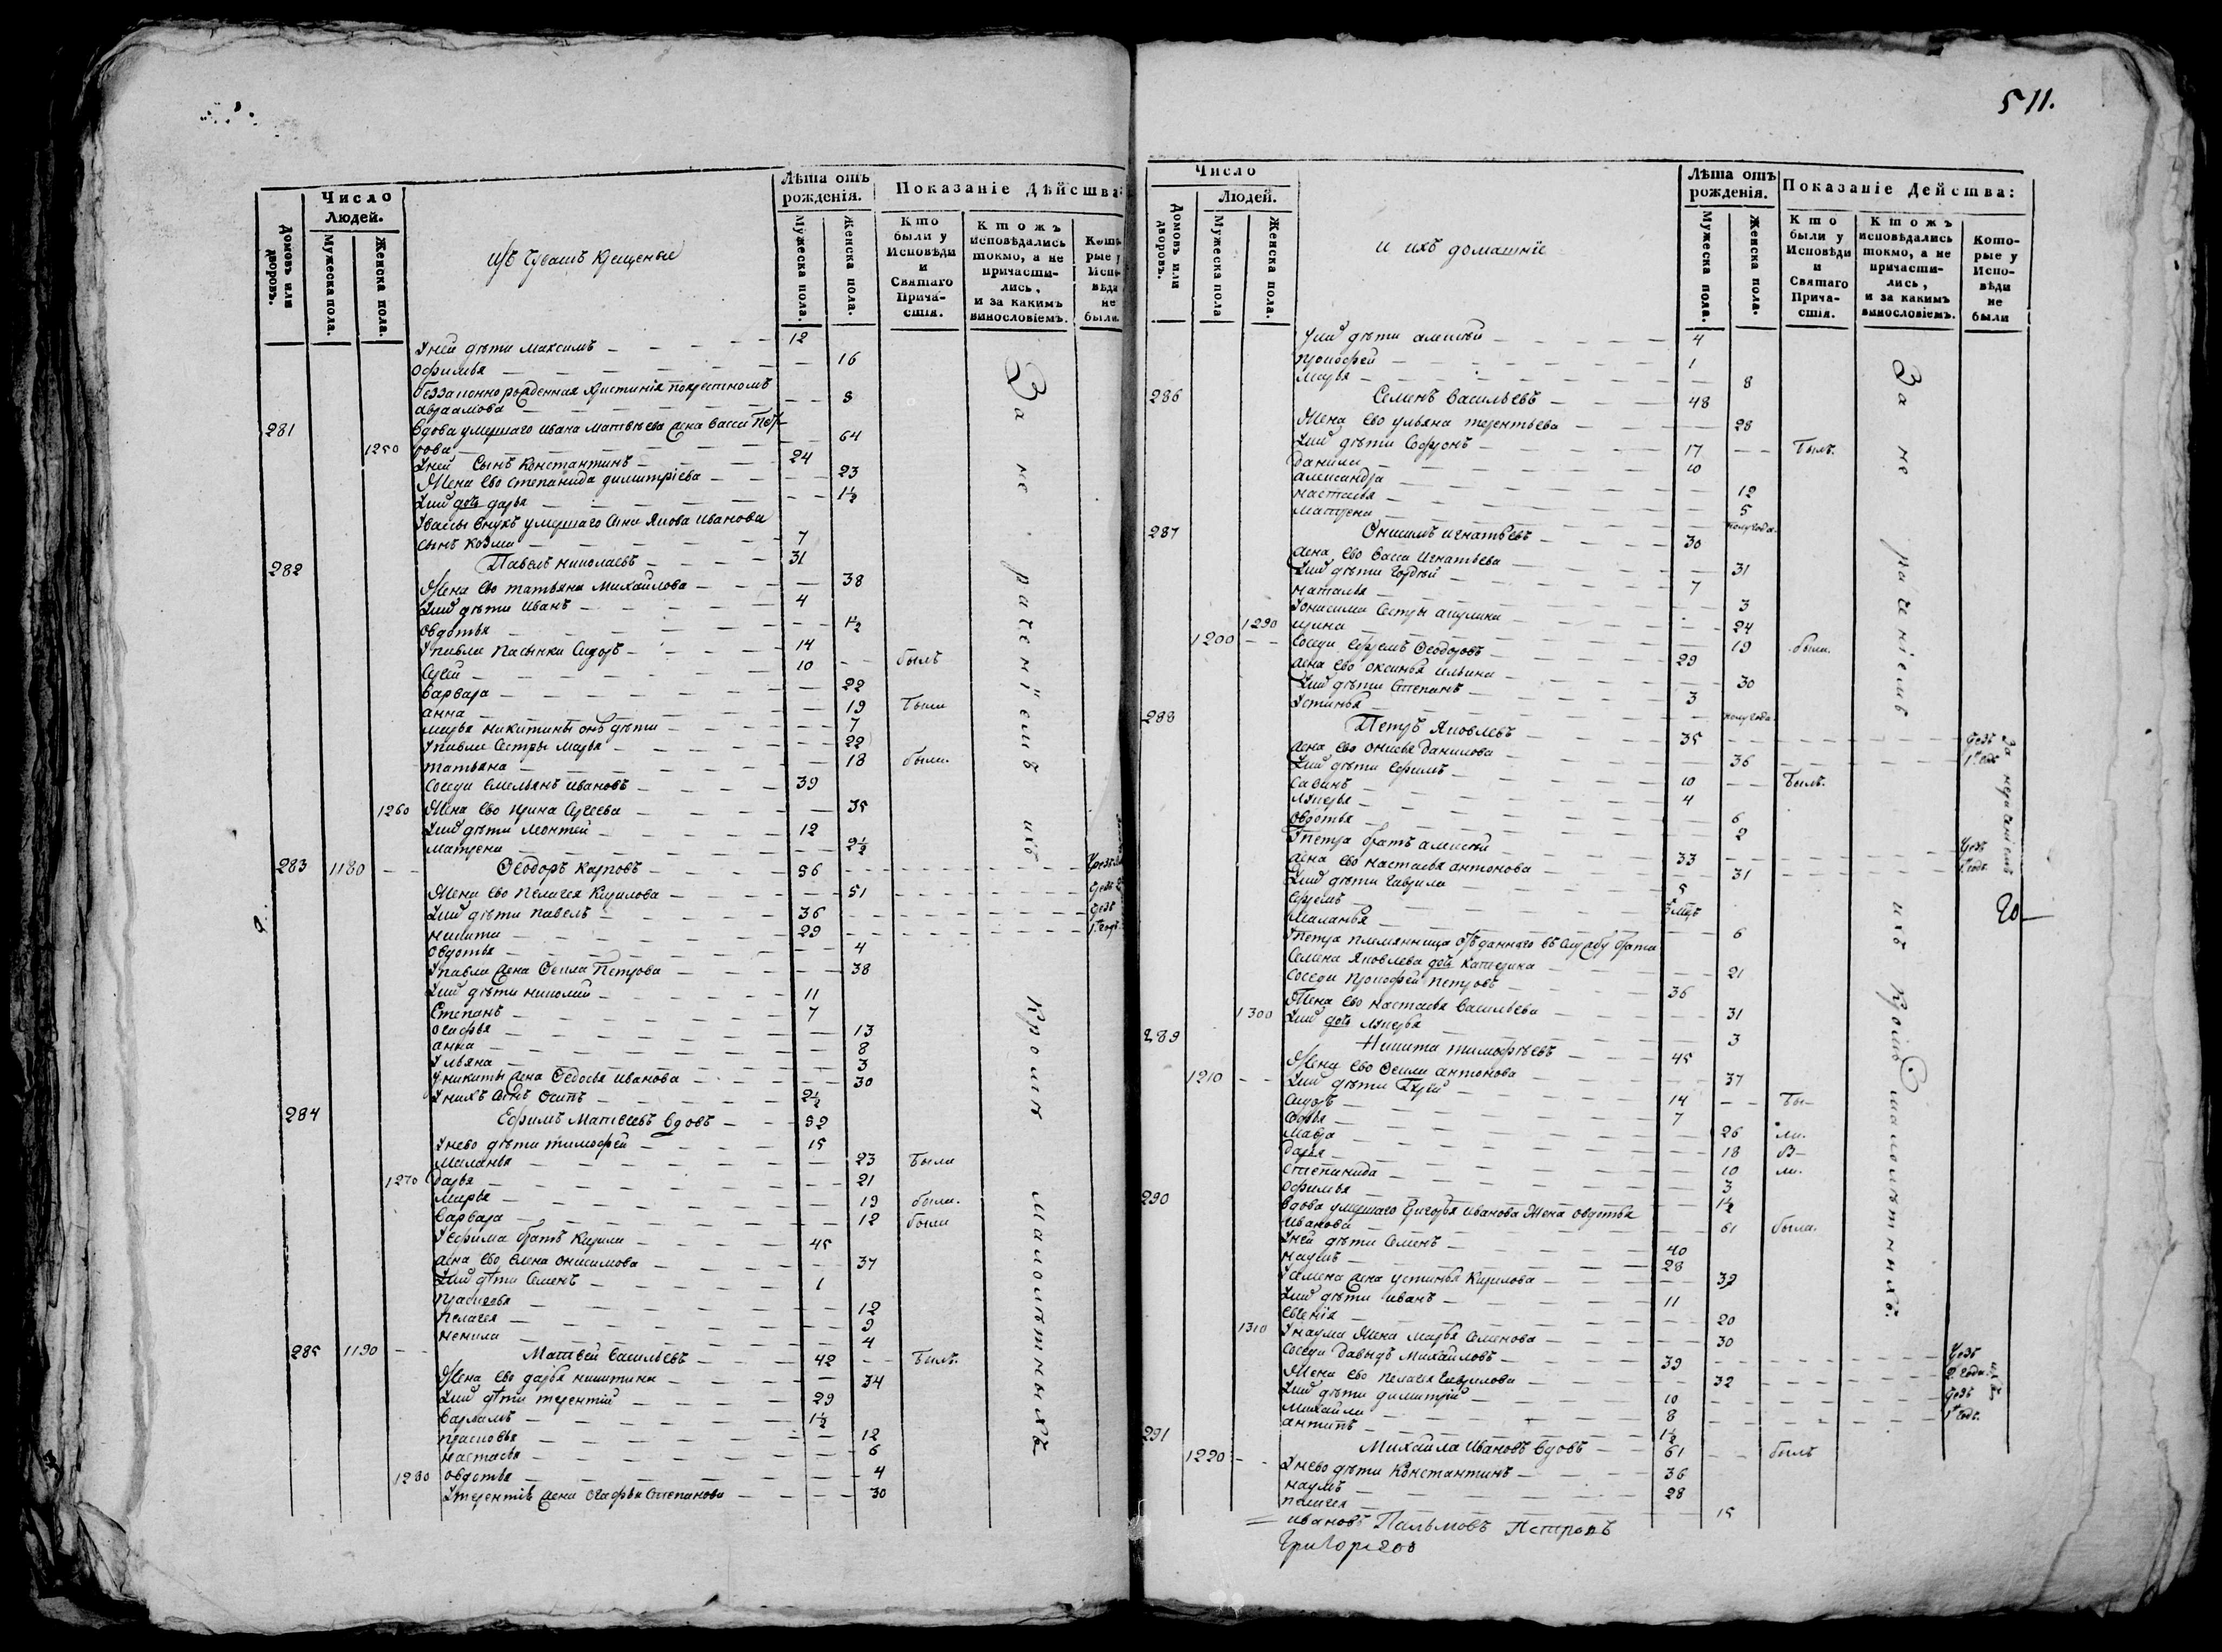 Число
Людей.
Домовъ или дворовъ.
Мужеска пола.
Женска пола.
изъ Чувашъ крещеныя
Лѣта отъ рожденія.
Мужеска пола.
Женска пола.
Показаніе Дѣйства:
Кто были у Исповѣди и Святаго Прича-стія.
Ктожъ исповѣдались токмо, а не причасти-лись, и за какимъ винословіемъ.
Кото-рые у Испо-вѣди не были.
У ней дѣти Максимъ 12
Офимья 16
беззаконно рожденная Христинія
Авраамова 8
281 Вдова умершаго Ивана Матвѣева жена Васса Пет-
1250 рова 64
У ней Сынъ Константинъ 24
Жена Ево Степанида Димитріева 23
У них дочь Дарья 1½
У Вассы внукъ умершаго Сына Якова Иванова
сынъ Козма 7
282 Павелъ Николаевъ 31
Жена Ево Татьяна Михайлова 38
У них дѣти Иванъ 4
Овдотья 1½
У Павла Пасынки Сидоръ 14
Сергей 10 былъ
Варвара 22
Анна 19 были
Марья Никитины онѣ дѣти 7
У Павла Сестры Марья 22
Татьяна 18 были.
Соседи Емельянъ Ивановъ 39
1260 Жена Ево Ирина Сергеева 35
У них дѣти Леонтей 12
Матрена 2½
283 1180 Ѳеодоръ Карповъ 56
Жена Ево Пелагея Кирилова 51
У них дѣти Павелъ 36
Никита 29
Овдотья 4
У Павла жена Ѳекла Петрова 38
У них дѣти Николай 11
Степанъ 7
Огафья 13
Анна 8
Ульяна 3
У Никиты жена Ѳедосья Иванова 30
У нихъ Сынъ Осипъ 2½
284 Ефимъ Матвеевъ вдовъ 52
У нево дѣти Тимофей 15
Маланья 23 были
1270 Дарья 21
Марья 19 были.
Варвара 12 были
У Ефима братъ Кирила 45
жена Ево Елена Онисимова 37
У них дѣти Семенъ 1
Прасковья 12
Пелагея 9
Ненила 4
285 1190 Матвей Васильевъ 42 былъ.
Жена Ево Дарья Никитина 34
У них дѣти Терентій 29
Варламъ 1½
Прасковья 12
Настасья 6
1280 Овдотья 4
У Терентія жена Огафья Степанова 30
За нераченіемъ ихъ Кромѣ малолѣтныхъ
511.
Число
Людей.
Домовъ или дворовъ.
Мужеска пола
Женска пола.
и ихъ домашніе
Лѣта отъ рожденія.
Мужеска пола.
Женска пола.
Показаніе Действа:
Кто были у Исповѣди и Святаго Прича-стія.
Ктожъ исповѣдались токмо, а не причасти-лись, и за какимъ винословіемъ.
Кото-рые у Испо-вѣди не были
У них дѣти Алексѣй 4
Прокофей 1
Марья 8
286 Семенъ Васильевъ 48
Жена Ево Ульяна Терентьева 28
У них дѣти Софронъ 17 былъ.
Данила 10
Александра 12
Настасья 5
Матрена полугода.
287 Онисимъ Игнатьевъ 30
жена Ево Васса Игнатьева 31
У них дѣти Гордѣй 7
Наталья 3
У Онисима Сестры Акулина 24
1290 Ирина 19 были.
1200 Соседи Ефремъ Ѳеодоровъ 29
жена Ево Оксинья Ильина 30
У них дѣти Степанъ 3
Устинья полугода.
288 Петръ Яковлевъ 35
жена Ево Онисья Данилова 36
У них дѣти Ефимъ 10 былъ.
Савинъ 4
Лукерья 6
Овдотья 2
У Петра братъ Алексѣй 33
жена Ево Настасья Антонова 31
У них дѣти Гаврила 5
Ефремъ
Маланья 6
У Петра племянница отъданнаго въ Службу брата
Семена Яковлева дочь Катерина 21
Соседи Прокофей Петровъ 36
Жена Ево Настасья Васильева 31
1300 У них дочь Лукерья 3
289 Никита Тимофѣевъ 45
Жена Ево Ѳекла Антонова 37
1210 У них дѣти 14 бы-
Сидоръ 7
26 ли.
Мавра 18 бы-
Дарья 10 ли.
Степанида 3
Офимья 1½
290 Вдова умершаго Григорья Иванова Жена Овдотья
Иванова 61 была.
У ней дѣти Семенъ 40
Наумъ 28
У Семена жена Устинья Кирилова 39
У них дѣти Иванъ 11
Евгенія 20
1310 У Наума Жена Марья Семенова 30
Соседи Давыдъ Михайловъ 39
Жена Ево Пелагея Гаврилова 32
У них дѣти Димитрій 10
Михайла 8
Антипъ 1½
291 Михайла Ивановъ вдовъ 61 былъ
1220 У нево дѣти Константинъ 36
Наумъ 28
Пелагея 15
За нераченіемъ ихъ Кромѣ малолѣтнихъ.
Ивановъ Пальмовъ Петровъ